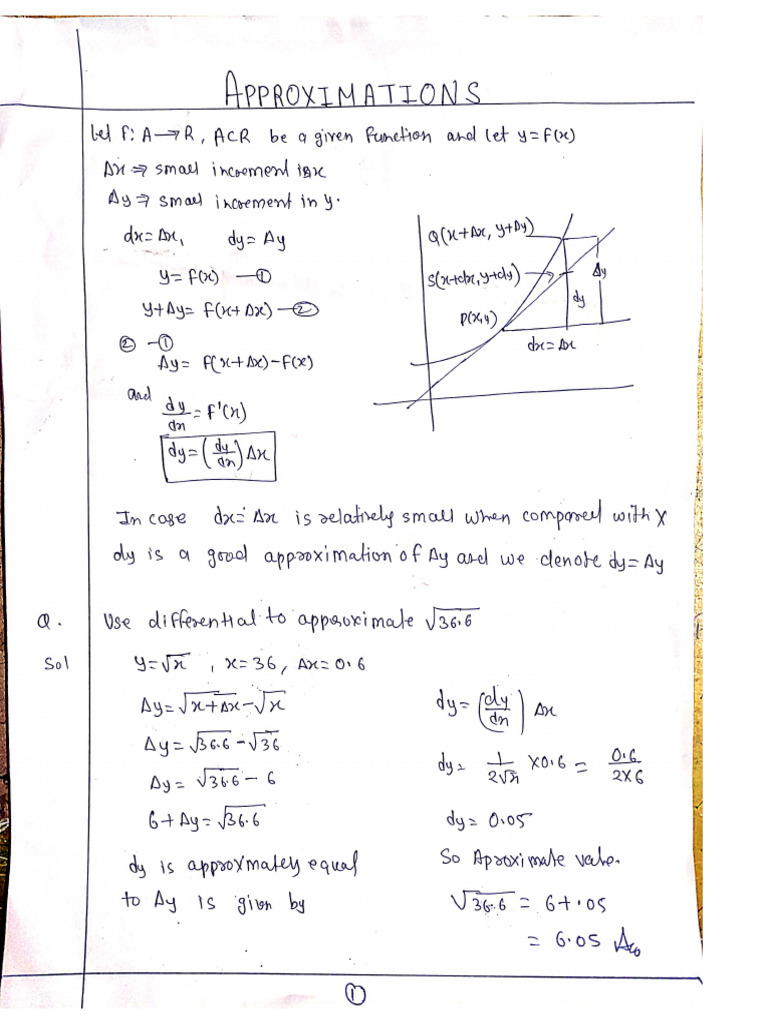 APPROXIMATIONS
Let f: A→R, ACR be a given function and let y=f(x)
Δx ⇒ small increment in x
Δy ⇒ small increment in y.
dx=Δx, dy=Δy
y=f(x) —①
y+Δy= f(x+Δx) —②
② -①
Δy= f(x+Δx)-f(x)
and
dy/dx = f'(x)
dy=(dy/dx)Δx
Q(x+Δx, y+Δy)
S(x+dx, y+dy)
P(x,y)
Δy
dy
dx=Δx
In case dx=Δx is relatively small when compared with X
dy is a good approximation of Δy and we denote dy=Δy
Q. Use differential to approximate √36.6
Sol y=√x , x=36, Δx=0.6
Δy=√x+Δx-√x
Δy=√36.6-√36
Δy=√36.6-6
6+Δy=√36.6
dy is approxmately equal
to Δy is given by
dy=(dy/dx) Δx
dy= 1/2√x ×0.6 = 0.6/2×6
dy= 0.05
So Aproximate value.
√36.6 = 6+.05
= 6.05 Ans
①